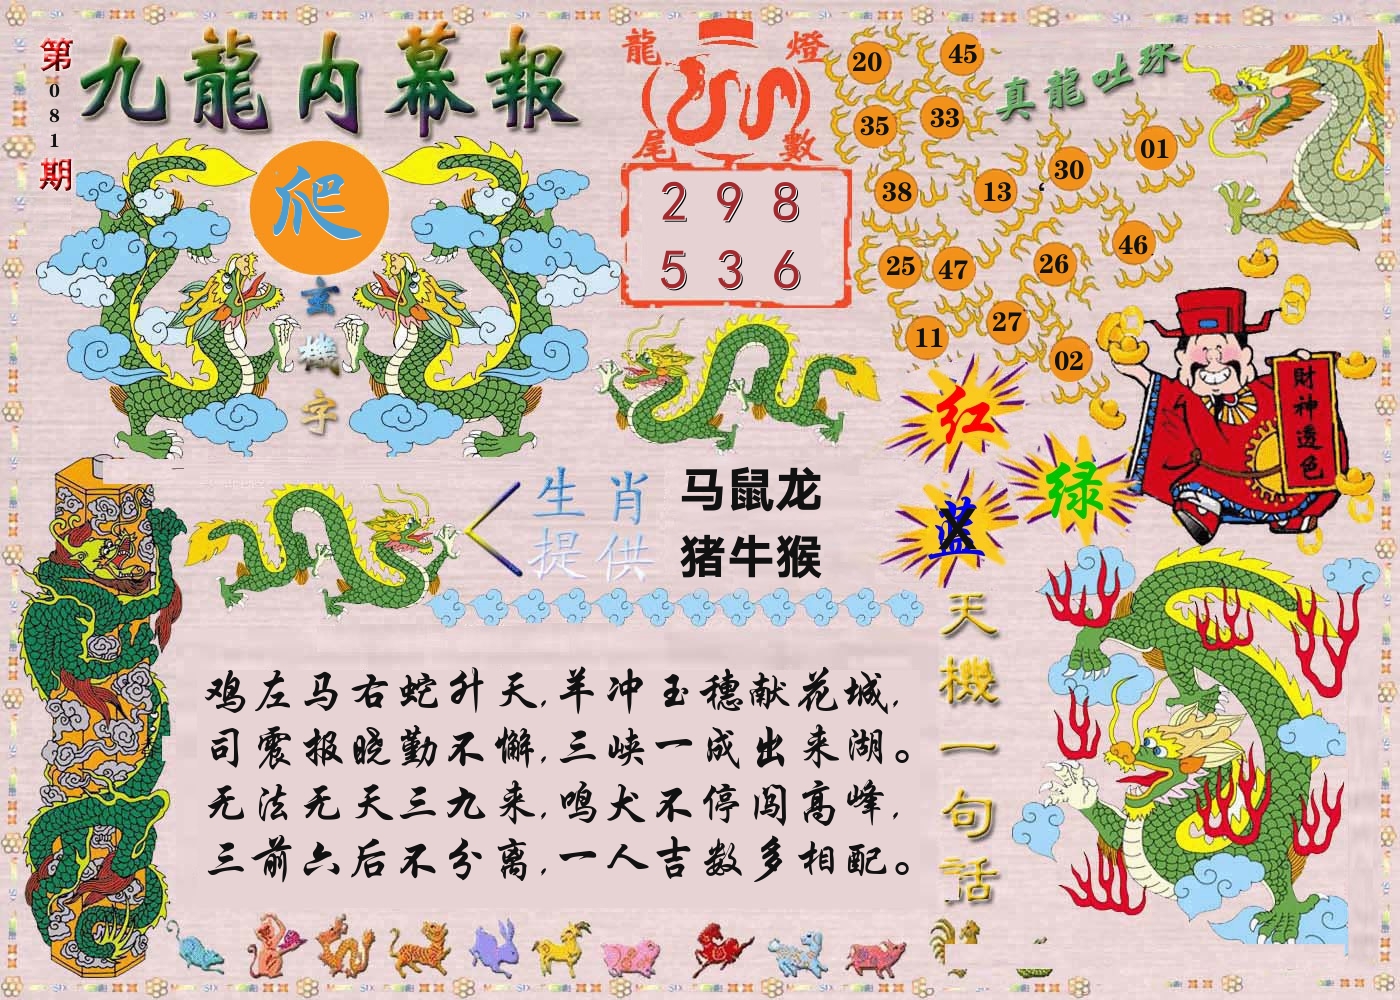 第081期
九龍内幕報
爬
玄機字
龍燈
尾數
2 9 8
5 3 6
真龍吐珠
20 45
35 33
38 13 30 01
25 47 26 46
11 27 02
財神透色
红
绿
蓝
生肖
提供
马鼠龙
猪牛猴
鸡左马右蛇升天,羊冲玉穗献花城,
司震报晓勤不懈,三峡一成出来湖。
无法无天三九来,鸣犬不停闯高峰,
三前六后不分离,一人吉数多相配。
天機一句話